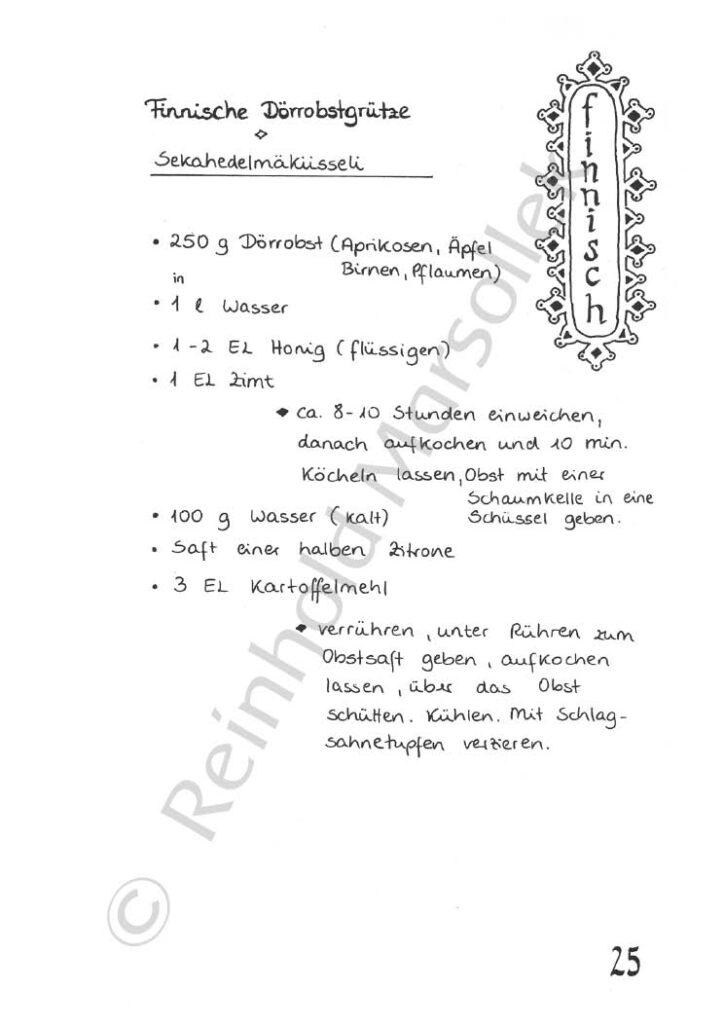 Finnische Dörrobstgrütze
Sekahedelmäküsseli
finnisch
• 250 g Dörrobst (Aprikosen, Äpfel
Birnen, Pflaumen)
in
• 1 l Wasser
• 1-2 EL Honig (flüssigen)
• 1 EL Zimt
◆ ca. 8-10 Stunden einweichen,
danach aufkochen und 10 min.
Köcheln lassen, Obst mit einer
Schaumkelle in eine
Schüssel geben.
• 100 g Wasser (kalt)
• Saft einer halben Zitrone
• 3 EL Kartoffelmehl
◆ verrühren, unter Rühren zum
Obstsaft geben, aufkochen
lassen, über das Obst
schütten. Kühlen. Mit Schlag-
sahnetupfen verzieren.
© Reinhold Marsollek
25